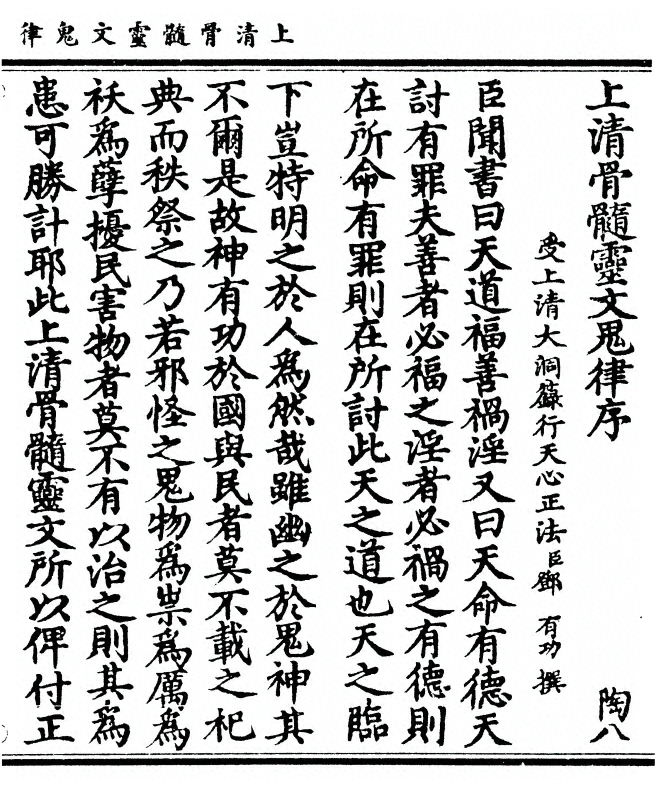 上清骨髓靈文鬼律
上清骨髓靈文鬼律序
陶八
受上清大洞籙行天心正法臣鄧 有功 撰
臣聞書曰天道福善禍淫又曰天命有德天
討有罪夫善者必福之淫者必禍之有德則
在所命有罪則在所討此天之道也天之臨
下豈特明之於人為然哉雖幽之於鬼神其
不爾是故神有功於國與民者莫不載之祀
典而秩祭之乃若邪怪之鬼物為祟為厲為
祅為孽擾民害物者莫不有以治之則其為
患可勝計耶此上清骨髓靈文所以俾付正